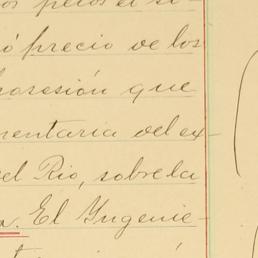 os pesos el si-
ó precio de los
posesión que
mentaria del ex-
del Rio, sobre la
a. El Ingenie-